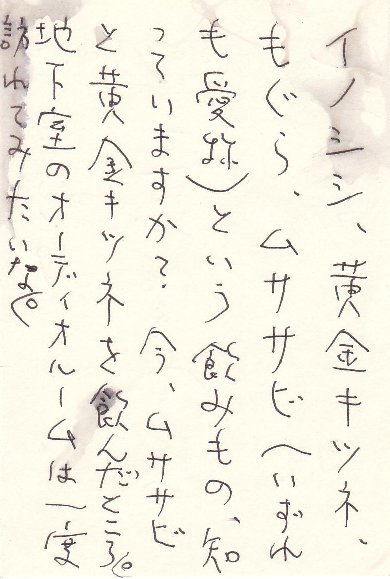 イノシシ、黄金キツネ、
もぐら、ムササビ(いずれ
も愛称)という飲みもの、知
っていますか? 今、ムササビ
と黄金キツネを飲んだところ。
地下室のオーディオルームは一度
訪れてみたいな。